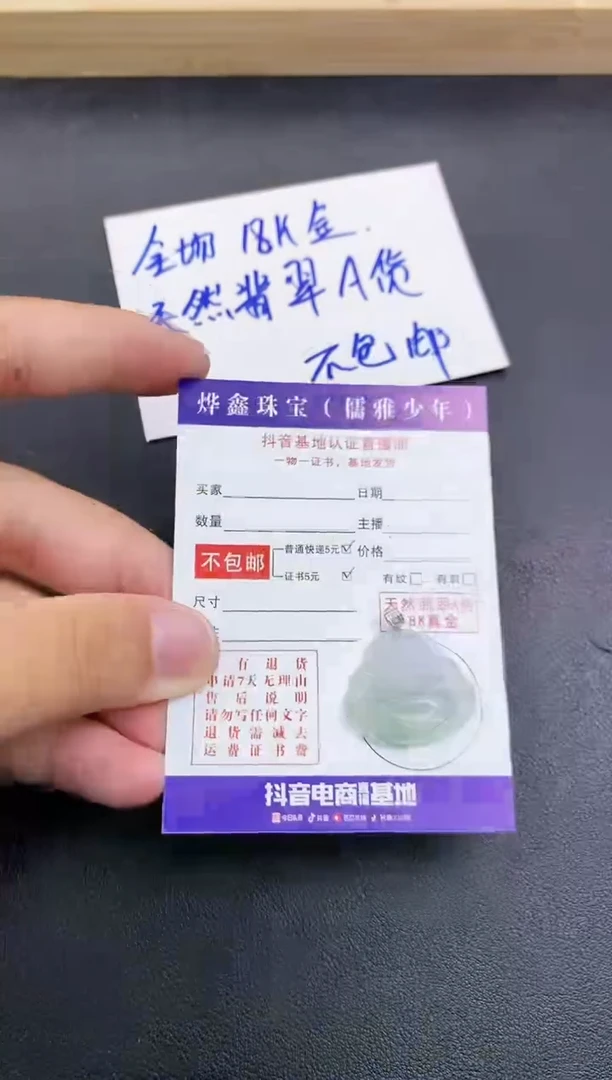 全场 18K金.
天然翡翠A货
不包邮
烨鑫珠宝（儒雅少年）
抖音基地认证直播间
一物一证书，基地发货
买家
日期
数量
主播
不包邮
普通快递5元
证书5元
价格
有纹
尺寸
天然翡翠A货
18K真金
有退货
申请7天无理由
售后说明
请勿写任何文字
退货需减去
运费证书费
抖音电商 基地
今日头条 抖音